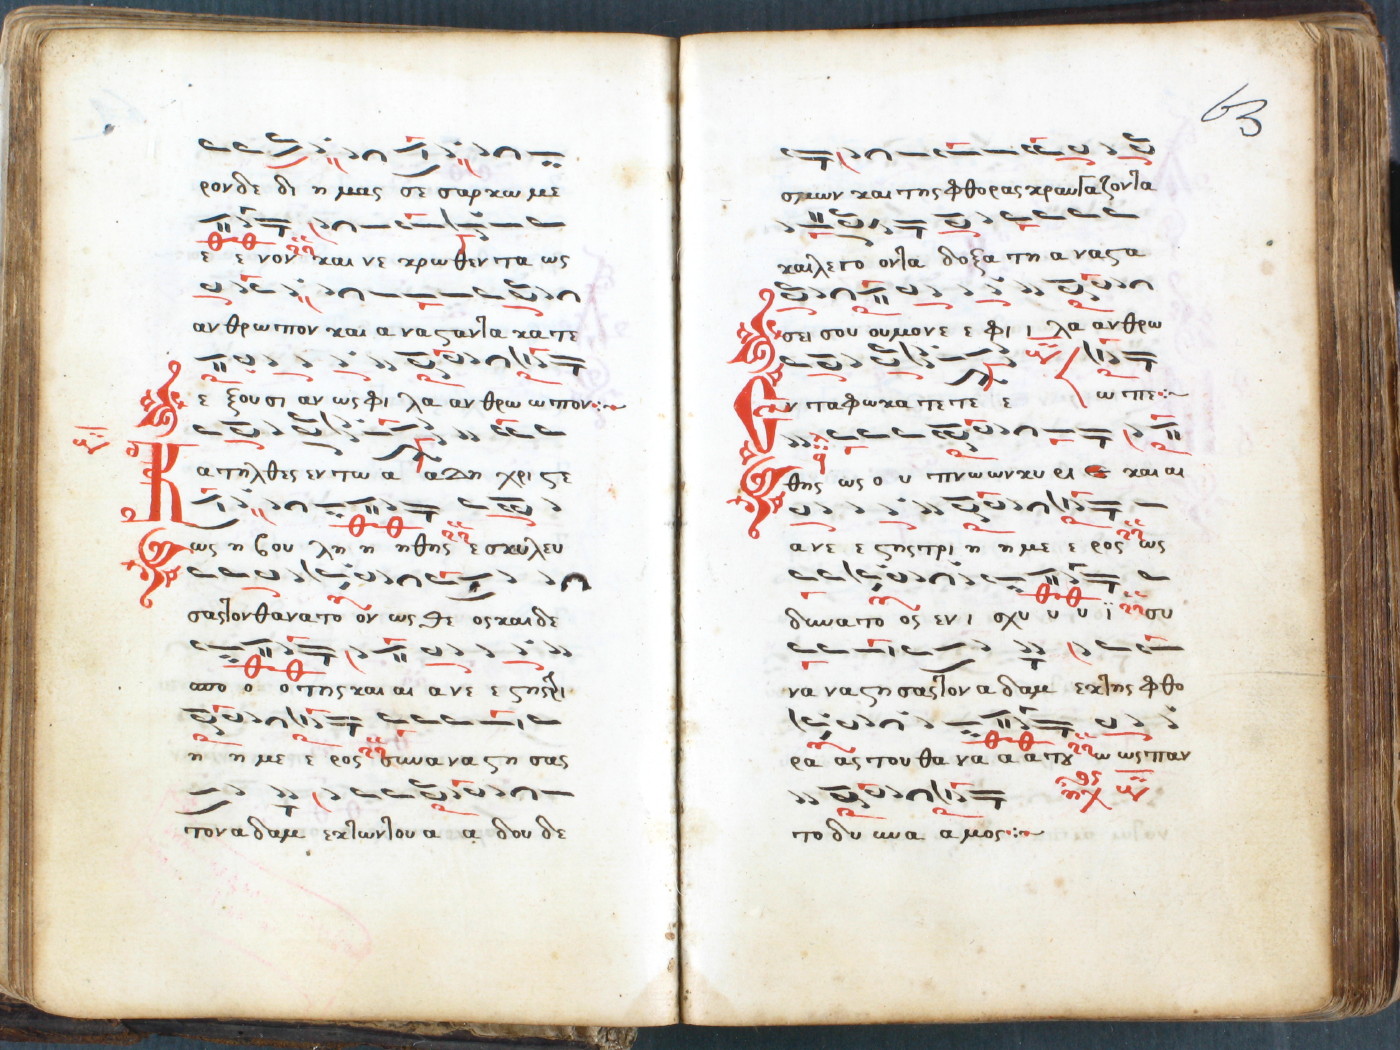 ρον δε δι η μας σε σαρκω με
ε ε νον και νε κρω θεν τα ως
αν θρω πον και α να ϛαν τα κα τε
ε ξου σι αν ως φι λα αν θρω ω πον
Κα τηλθες εν τω α α δη χρι ϛε
ως η βου λη η η θης ε σκυλευ
σας τον θανατο ον ως θε ος και δε
απο ο ο της και αι α νε ε ϛης τρι
η η με ε ρος συν α να ϛη σας
τον α δαμ εκ των του α α δου δε
σμων και της φθορας κραυγαζοντα
και λε γο οντα δοξα τη α να ϛα
σει σου ου μο νε ε φι ι λα αν θρω
ω πε
Εν τα φω κα τε τε ε
θης ως ο υ πνω ων κυ ρι ε και αι
α νε ε ϛης τρι η η με ε ρος ως
δυνατο ος εν ι σχυ υ υ υϊ συ
να να ϛη σας τον α δαμ εκ της φθο
ρα ας του θα να α α του ω ως παν
το δυ υνα α μος
63